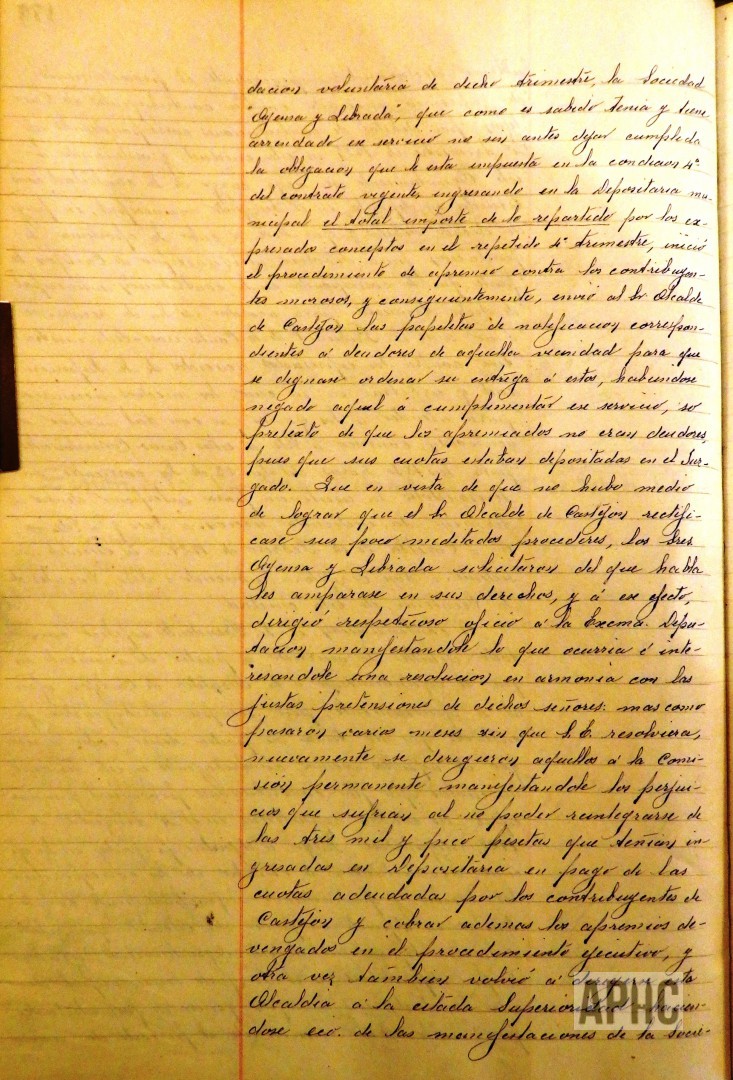 dacion voluntaria de dicho trimestre, la Sociedad
"Ayensa y Librada", que como es sabido tenia y tiene
arrendado ese servicio no sin antes dejar cumplida
la obligacion que le esta impuesta en la condicion 4ª
del contrato vigente, ingresando en la Depositaria mu-
nicipal el total importe de lo repartido por los ex-
presados conceptos en el repetido 4º trimestre, inició
el procedimiento de apremio contra los contribuyen-
tes morosos, y consiguientemente, envió al Sr Alcalde
de Castejon las papeletas de notificacion correspon-
dientes á deudores de aquella vecindad para que
se dignase ordenar su entrega á estos, habiendose
negado aquel á cumplimentar ese servicio, so
pretexto de que los apremiados no eran deudores,
pues que sus cuotas estaban depositadas en el Juz-
gado. Que en vista de que no hubo medio
de lograr que el Sr Alcalde de Castejon rectifi-
case sus poco meditados procederes, los Sres
Ayensa y Librada solicitaron del que habla
les amparase en sus derechos, y á ese efecto,
dirigió respetuoso oficio á la Excma. Dipu-
tacion manifestandole lo que ocurria é inte-
resandole una resolucion en armonia con las
justas pretensiones de dichos señores: mas como
pasaron varios meses sin que S.E. resolviera,
nuevamente se dirigieron aquellos á la Comi-
sión permanente manifestandole los perjui-
cios que sufrian al no poder reintegrarse de
las tres mil y pico pesetas que tenian in-
gresadas en Depositaria en pago de las
cuotas adeudadas por los contribuyentes de
Castejon y cobrar ademas los apremios de-
vengados en el procedimiento ejecutivo, y
otra vez tambien volvió á esta
Alcaldia á la citada Superioridad hacien-
dose eco de las manifestaciones de la Socie-
APHC